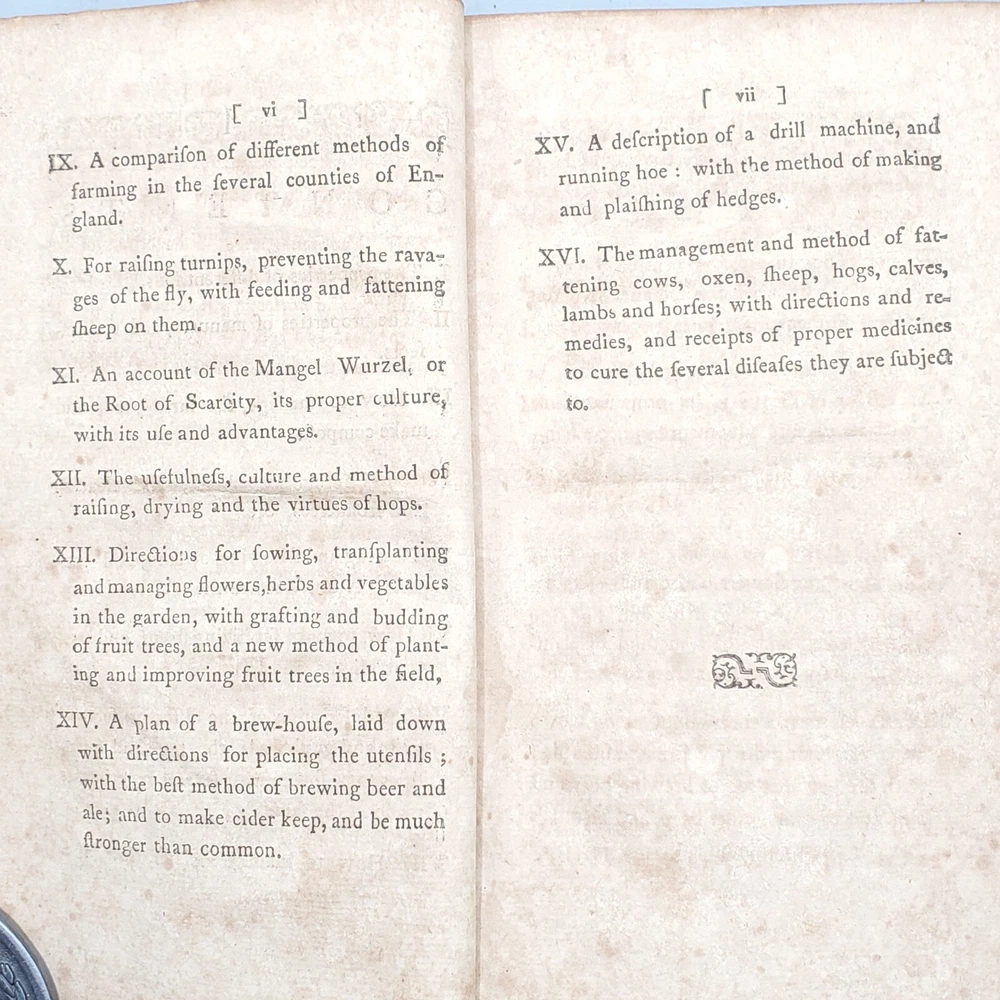 [ vi ]
IX. A compariſon of different methods of
farming in the ſeveral counties of En-
gland.
X. For raiſing turnips, preventing the rava-
ges of the fly, with feeding and fattening
ſheep on them.
XI. An account of the Mangel Wurzel, or
the Root of Scarcity, its proper culture,
with its uſe and advantages.
XII. The uſefulneſs, culture and method of
raiſing, drying and the virtues of hops.
XIII. Directions for ſowing, tranſplanting
and managing flowers,herbs and vegetables
in the garden, with grafting and budding
of fruit trees, and a new method of plant-
ing and improving fruit trees in the field,
XIV. A plan of a brew-houſe, laid down
with directions for placing the utenſils ;
with the beſt method of brewing beer and
ale; and to make cider keep, and be much
ſtronger than common.
[ vii ]
XV. A deſcription of a drill machine, and
running hoe : with the method of making
and plaiſhing of hedges.
XVI. The management and method of fat-
tening cows, oxen, ſheep, hogs, calves,
lambs and horſes; with directions and re-
medies, and receipts of proper medicines
to cure the ſeveral diſeaſes they are ſubject
to.